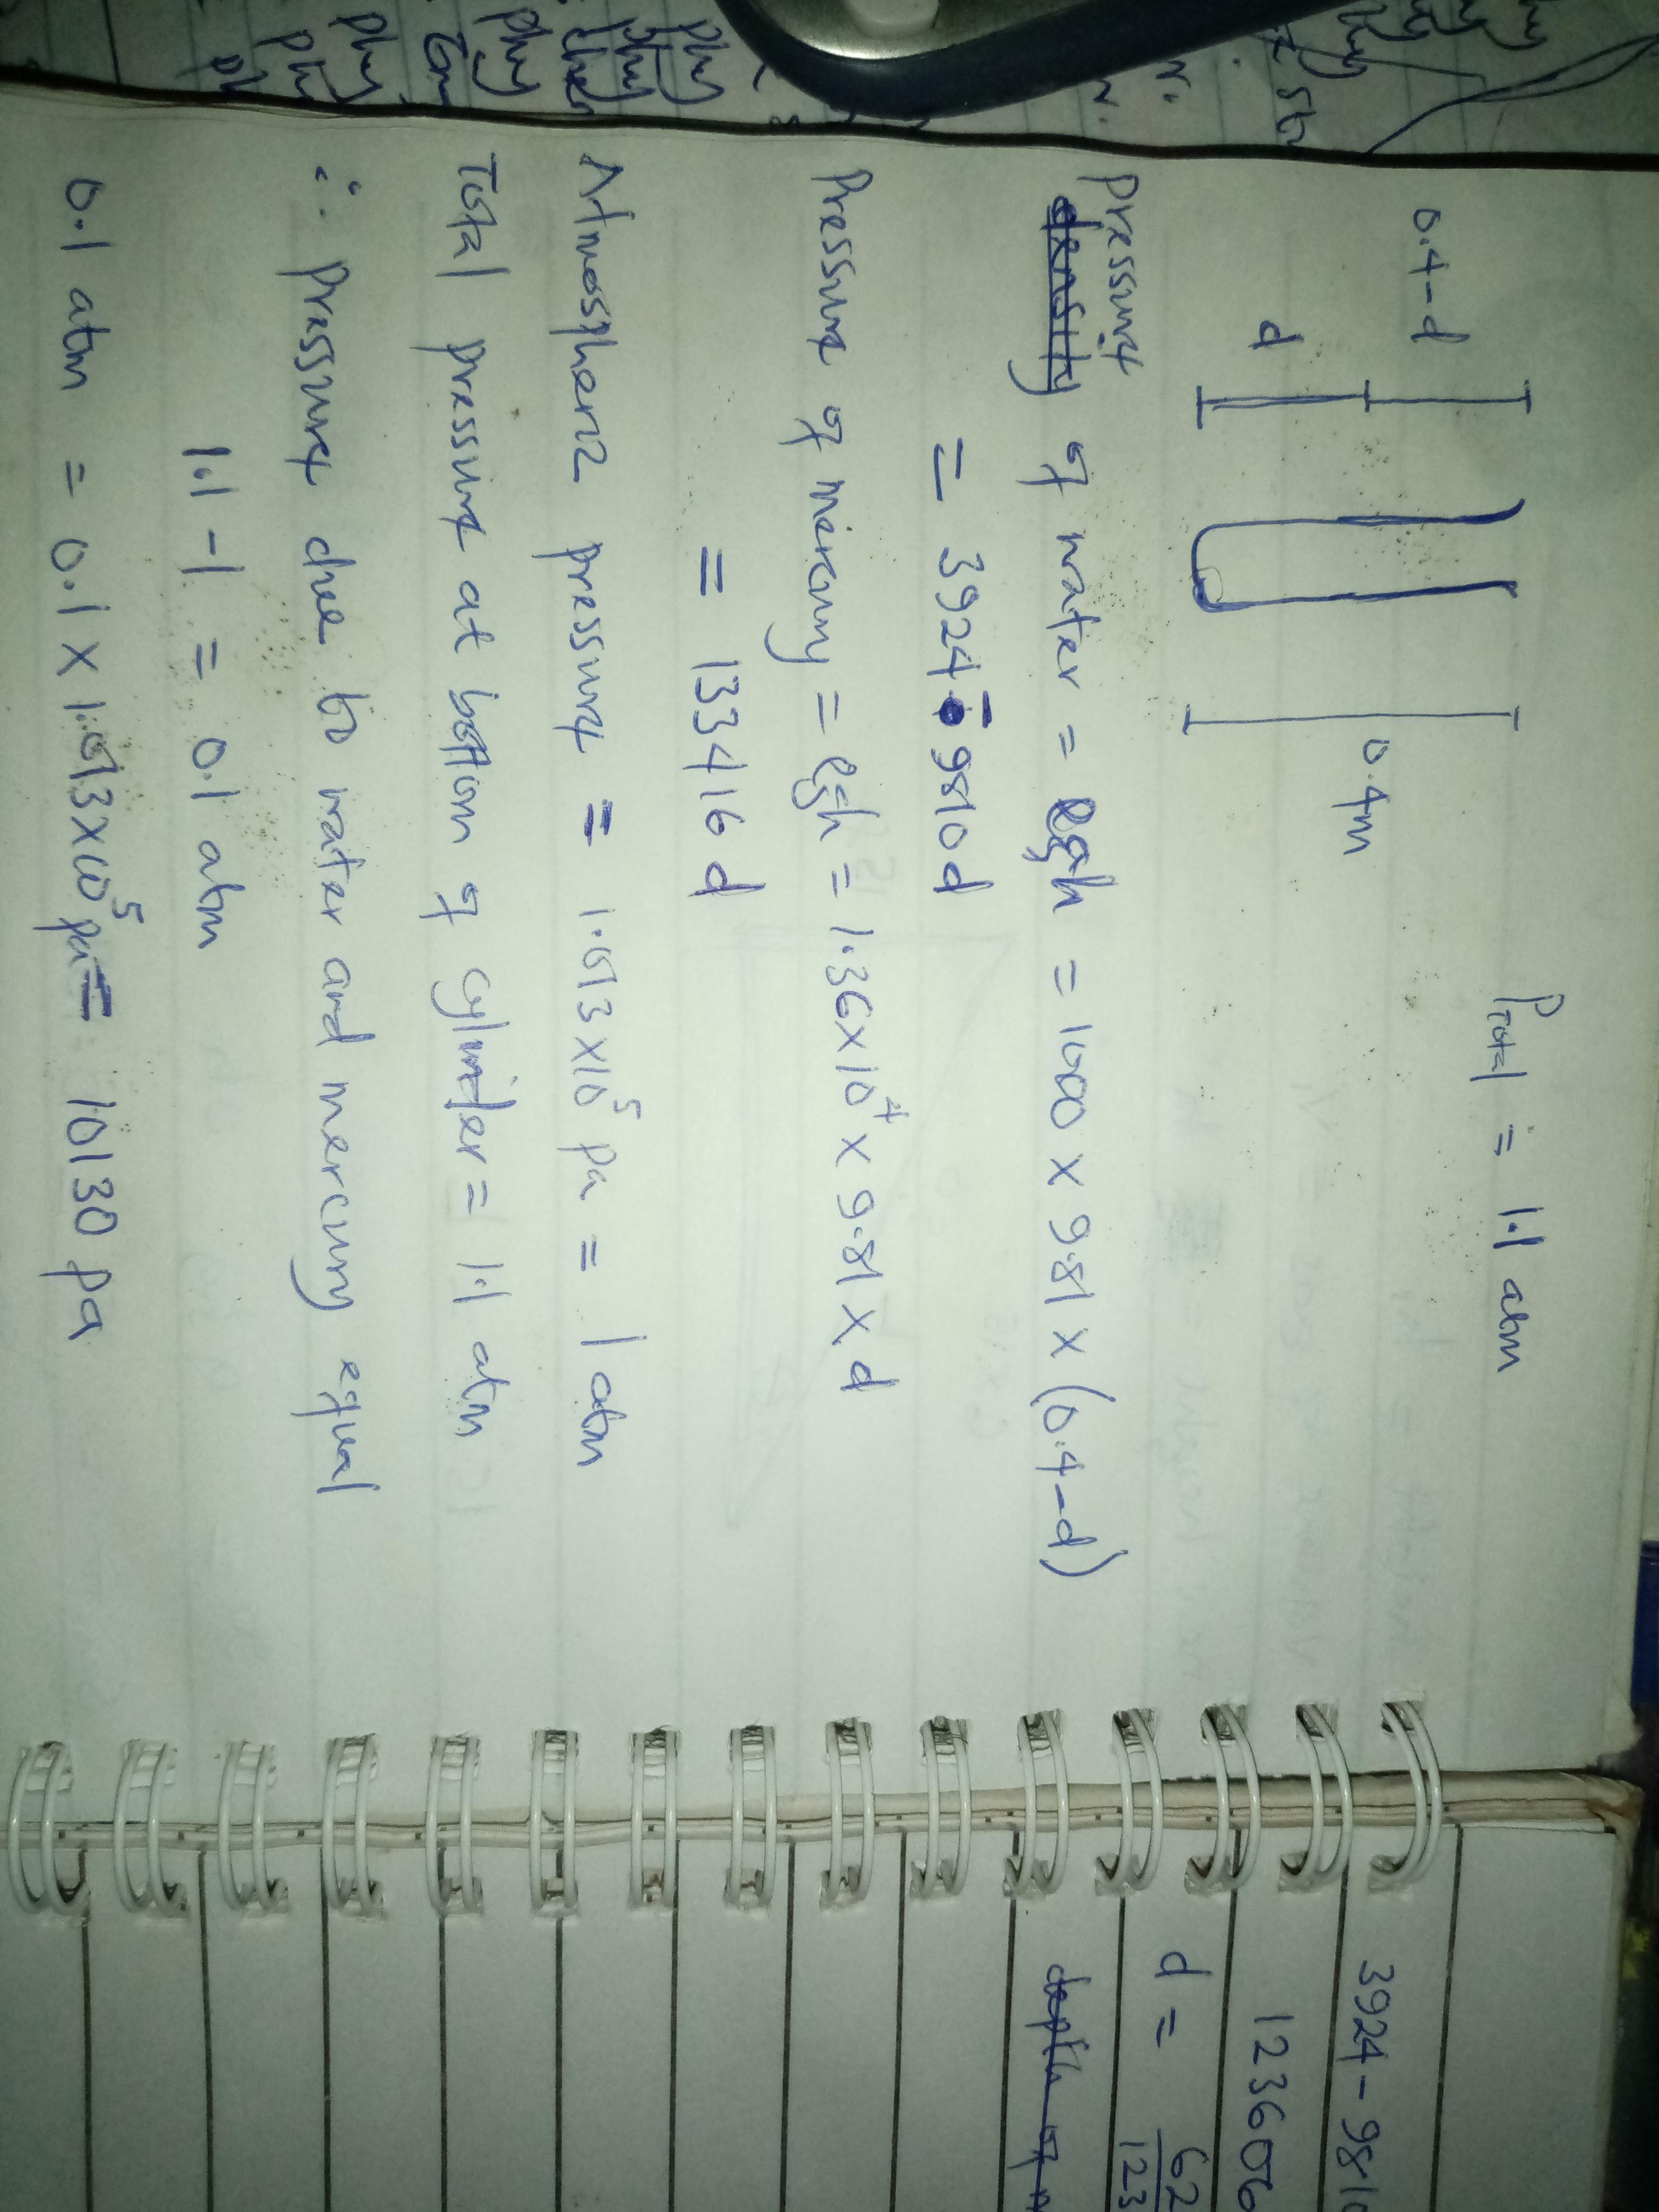 P_Total = 1.1 atm
0.4-d
d
0.4m
pressure
density of water = ρgh = 1000 × 9.81 × (0.4-d)
= 3924 - 9810d
Pressure of mercury = ρgh = 1.36×10⁴ × 9.81 × d
= 133416 d
Atmospheric pressure = 1.013×10⁵ pa = 1 atm
Total pressure at bottom of cylinder = 1.1 atm
∴ pressure due to water and mercury equal
1.1 - 1 = 0.1 atm
0.1 atm = 0.1 × 1.013×10⁵ pa = 10130 pa
3924 - 9810
123606
d = 62
123
depth of
phy
phy
phy
phy
phy